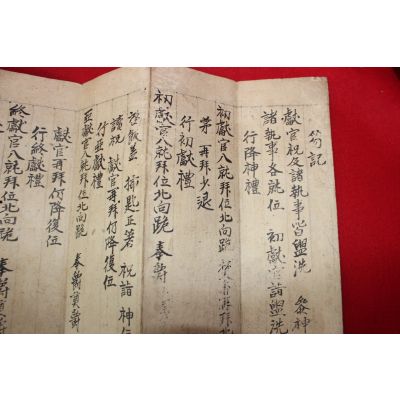 笏記
獻官祝及諸執事皆盥洗 參神
諸執事各就位 初獻官詣盥洗
行降神禮
初獻官入就拜位北向跪
茅 再拜少退
行初獻禮
初獻官入就拜位北向跪 奉
啓飯盖 揷匙正筯 祝詣 神位
讀祝 獻官再拜 降復位
行亞獻禮
亞獻官入就拜位北向跪 奉爵奠爵
獻官再拜 降復位
行終獻禮
終獻官入就拜位北向跪 奉爵奠爵